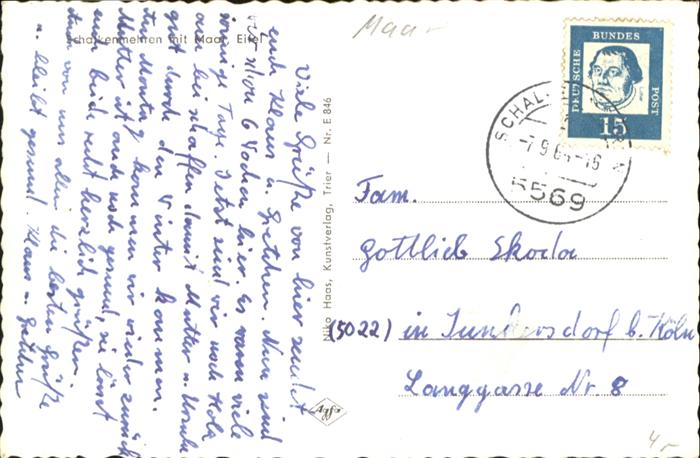 Maar
Schalkenmehren mit Maar, Eifel
Viele Grüße von hier sendet
euch Klaus u. Gretchen. Nun sind
wir schon 6 Wochen hier, es waren viele
sonnige Tage. Jetzt sind wir noch Holz
am bei schaffen damit Mutter u.
gut durch den Winter kommen.
Montag kommen wir wieder zurück
Mutter ist auch noch gesund, sie lässt
euch beide recht herzlich grüßen.
von uns allen die besten Grüße
u. bleibt gesund. Klaus u. Gretchen
Niko Haas, Kunstverlag, Trier — Nr. E 846
Agfa
DEUTSCHE BUNDES POST
15
SCHAL
-7.9.6 -16
5569
Fam.
Gottlieb Skoda
(5022) in Junkersdorf b. Köln
Langgasse Nr. 8
4,-